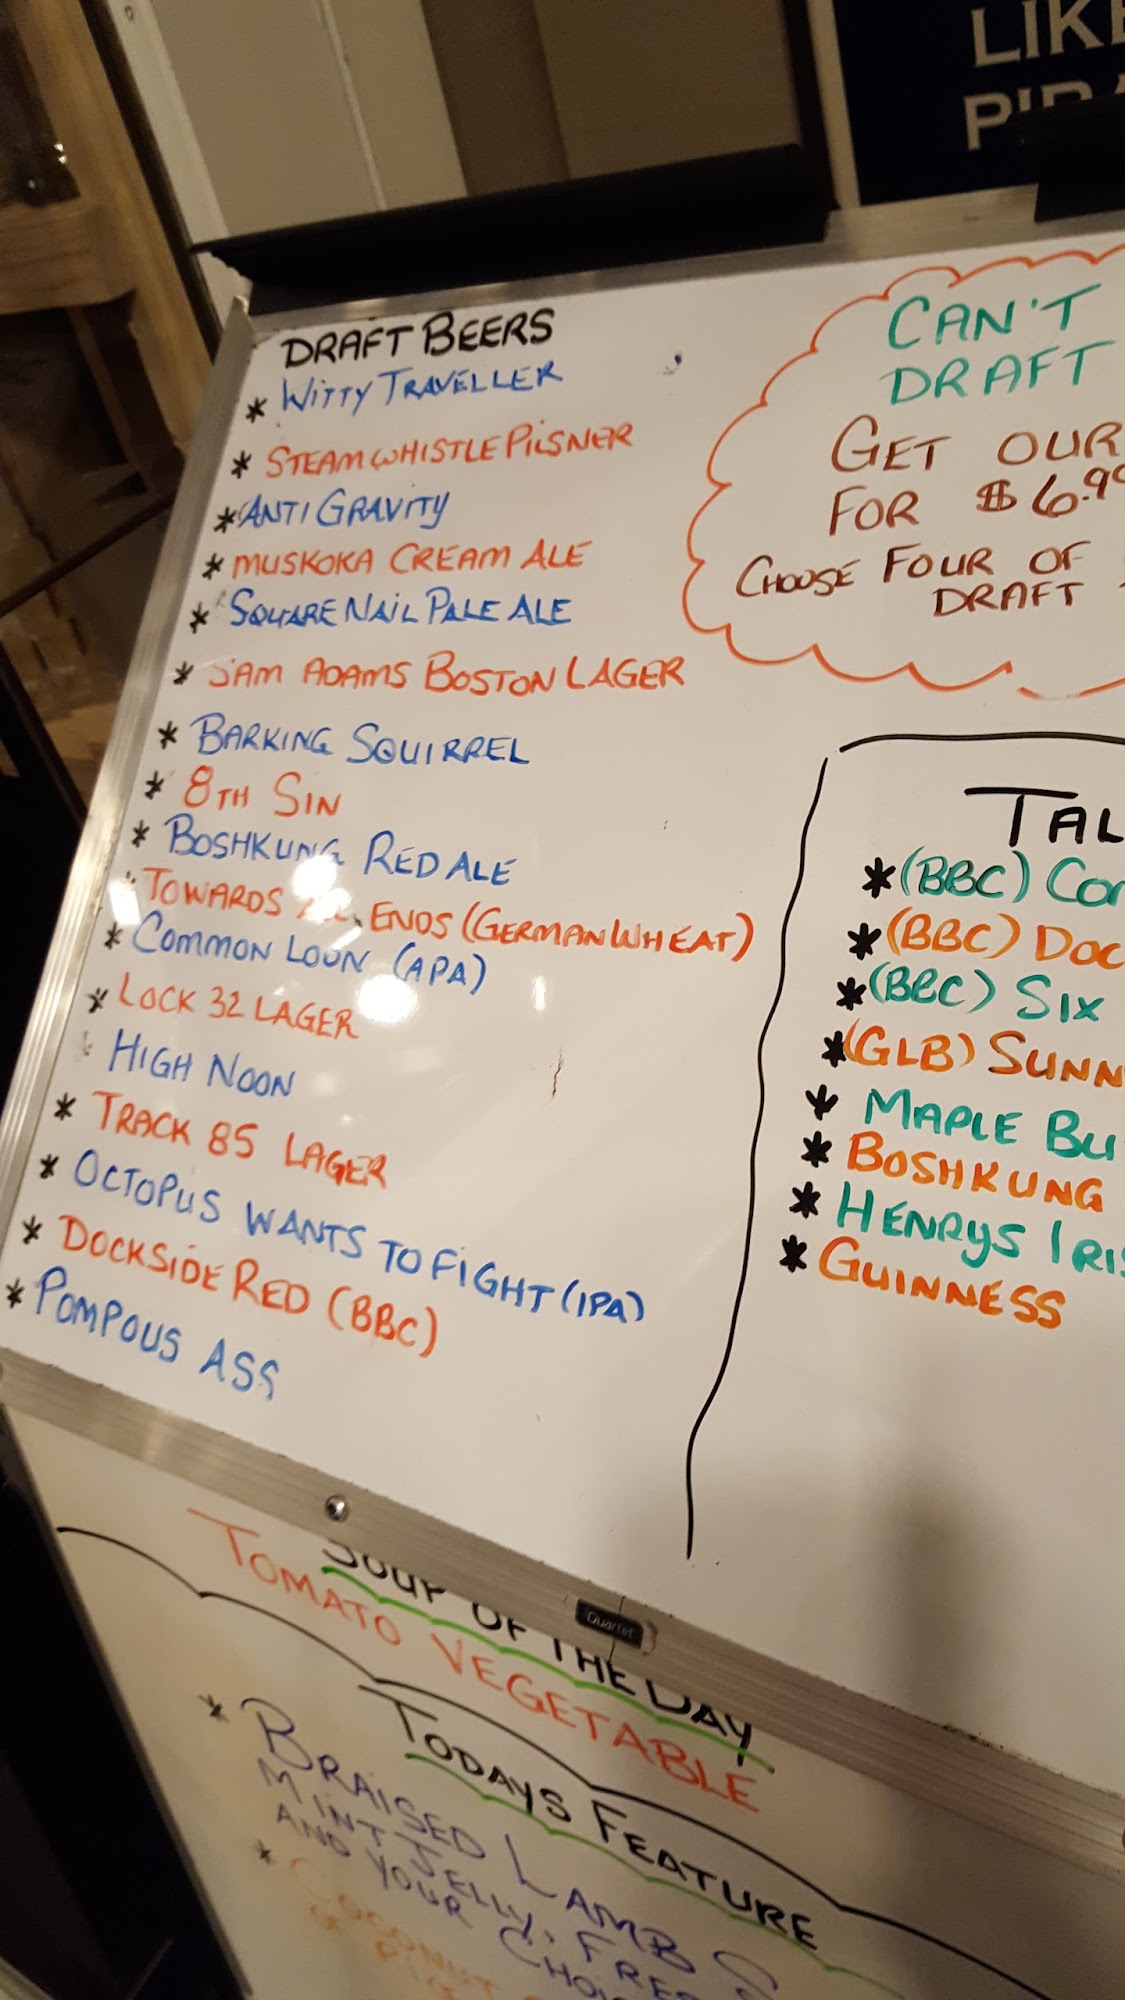 LIKE
DRAFT BEERS
* WITTY TRAVELLER
* STEAMWHISTLE PILSNER
* ANTI GRAVITY
* MUSKOKA CREAM ALE
* SQUARE NAIL PALE ALE
* SAM ADAMS BOSTON LAGER
* BARKING SQUIRREL
* 8TH SIN
* BOSHKUNG RED ALE
TOWARDS ENDS (GERMAN WHEAT)
* COMMON LOON (APA)
* LOCK 32 LAGER
HIGH NOON
* TRACK 85 LAGER
* OCTOPUS WANTS TO FIGHT (IPA)
* DOCKSIDE RED (BBC)
* POMPOUS ASS
CAN'T
DRAFT
GET OUR
FOR $6.99
CHOOSE FOUR OF
DRAFT
TAL
* (BBC)
* (BBC) DOC
* (BBC) SIX
* (GLB) SUNN
* MAPLE BU
* BOSHKUNG
* HENRYS IRIS
* GUINNESS
Quartet
SOUP OF THE DAY
TOMATO VEGETABLE
TODAYS FEATURE
* BRAISED LAMB S
MINT JELLY, FRES
AND YOUR CHOI
* COCONUT